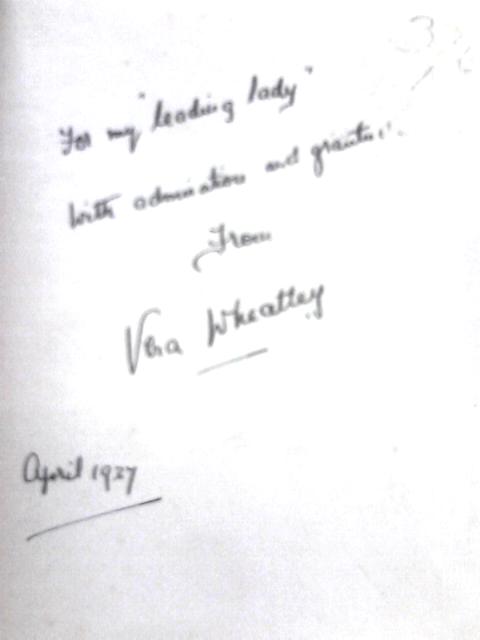 For my "leading lady"
with admiration and gratitude.
From
Vera Wheatley
April 1927